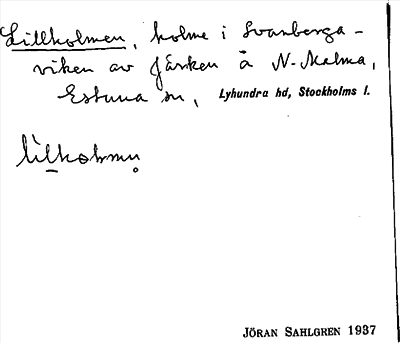 Lillholmen, holme i Svanberga-
viken av Järken å N. Malma,
Estuna sn, Lyhundra hd, Stockholms l.
lìlholmu̥
JÖRAN SAHLGREN 1937